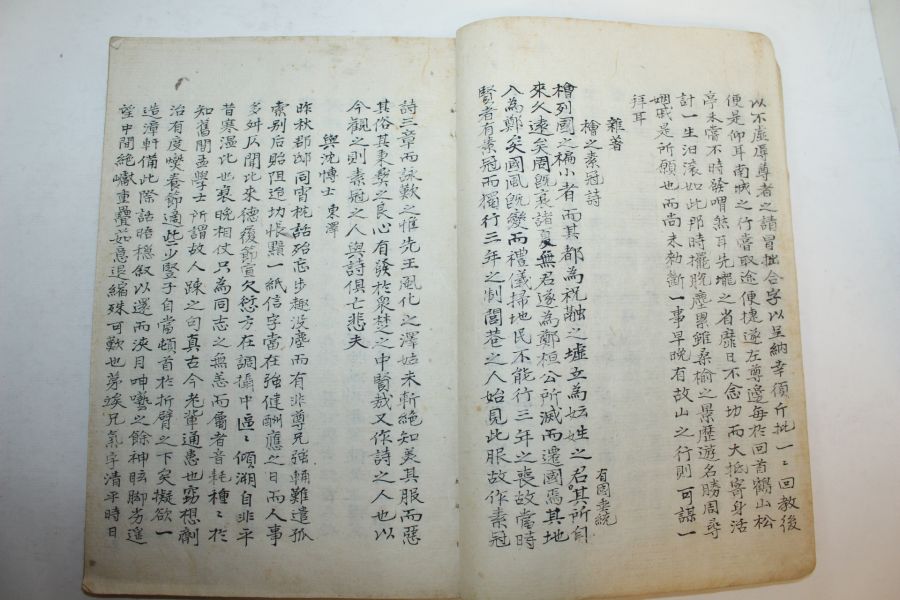 以不虛辱尊者之請冒拙合字以呈納幸須斤批一〻回敎後
便是仰耳南城之行嘗取途便捷遂左尊邊每於回首鶴山松
亭未嘗不時發喟然耳先壠之省靡日不念切而大抵寄身活
計一生汨滾如此那時擺脫塵累雖桑榆之景歷遊名勝周尋
姻戚是所願也而尚未勑斷一事早晚有故山之行則可謀一
拜耳
雜著
檜之素冠詩
檜列國之褊小者而其都為祝融之墟立為妘姓之君其所自
有國垂統
來久遠矣周旣衰諸夏無君遂為鄭桓公所滅而遷國焉其地
入為鄭矣國風旣變而禮儀掃地民不能行三年之喪故當時
賢者有素冠而獨行三年之制閭巷之人始見此服故作素冠
詩三章而詠歎之惟先王風化之澤姑未斬絕知美其服而惡
其俗其秉彛之良心有發於衆楚之中賢哉又作詩之人也以
今觀之則素冠之人與詩俱亡悲夫
與沈博士 東澤
昨秋郡邸同宵梳話殆忘步趣沒塵而有非尊兄強輔難遣孤
索別后貽阻追切悵黯一紙信字當在強健酬應之日而人事
多舛仄聞比來德復節宣久愆方在調攝中區〻傾溯自非平
昔寒溫比也衰晩相仗只為同志之無恙而屬者音耗種〻於
知舊間孟學士所謂故人踈之句真古今老輩通患也竊想劑
治有度爕養節適些少豎子自當頓首於折臂之下矣擬欲一
造漳軒備此際諸晤穩叙以還而浹月呻囈之餘神眩脚劣進
望中間絕巘重疊茹意退縮殊可歎也第竢兄氣字清平時日